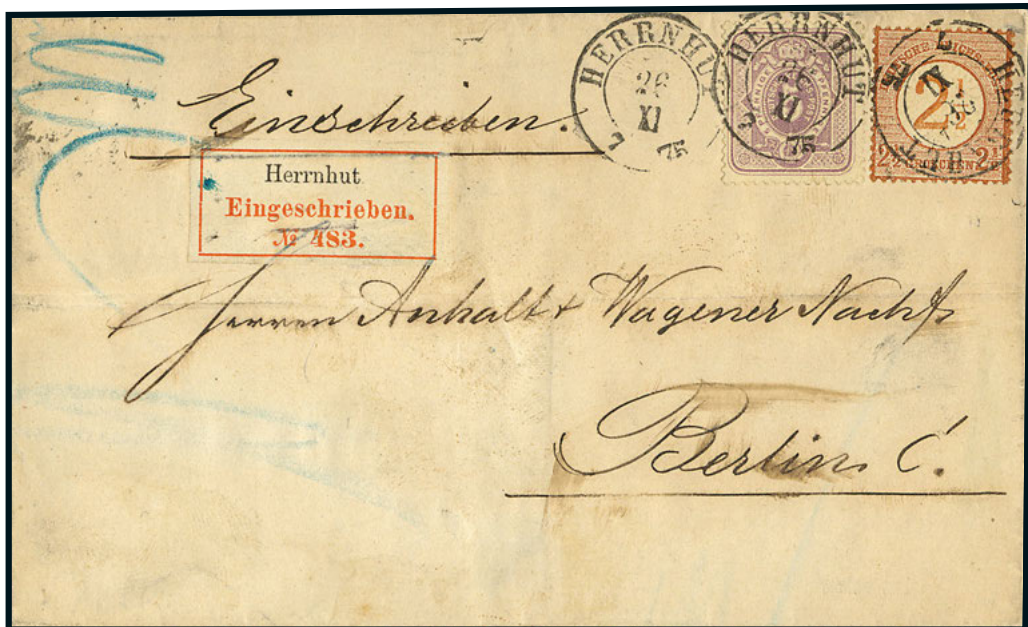 Einschreiben.
HERRNHUT
26
XI
75
HERRNHUT
26
XI
75
2½
2½ GROSCHEN 2½
Herrnhut
Eingeschrieben.
№ 483.
Herren Anhalt + Wagener Nachf
Berlin C.